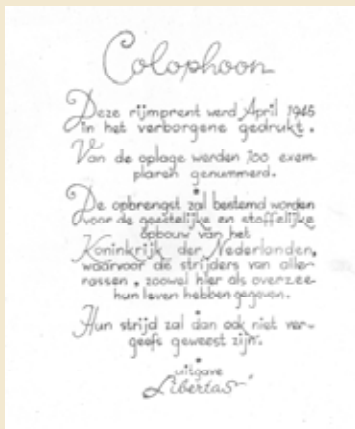 Colophoon
Deze rijmprent werd April 1945
in het verborgene gedrukt.
Van de oplage werden 100 exem-
plaren genummerd.
De opbrengst zal bestemd worden
voor de geestelijke en stoffelijke
opbouw van het
Koninkrijk der Nederlanden,
waarvoor de strijders van aller
rassen, zoowel hier als overzee
hun leven hebben gegeven.
Hun strijd zal dan ook niet ver-
geefs geweest zijn.
uitgave
Libertas